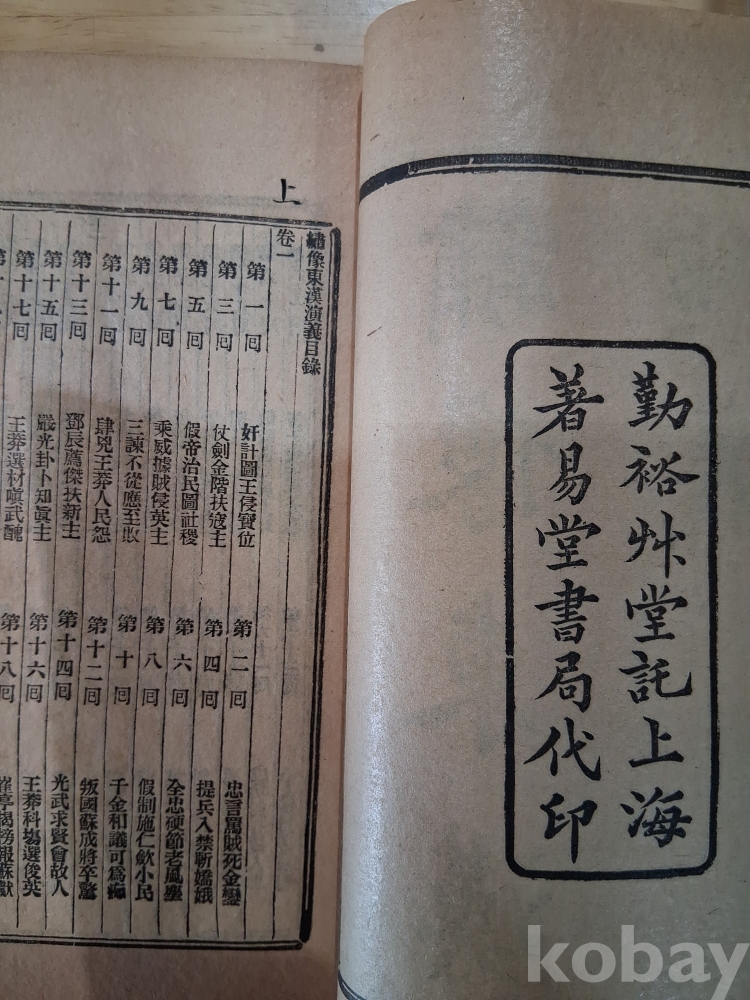 勤裕艸堂託上海
著易堂書局代印
上
繡像東漢演義目錄
卷一
第一回 奸計圖王侵寶位 第二回 忠言罵賊死金鑾
第三回 仗劍金階扶寇主 第四回 提兵入禁斬嬌娥
第五回 假帝治民圖社稷 第六回 全忠硬節老風塵
第七回 乘威據賊侵英主 第八回 假制施仁斂小民
第九回 三諫不從應至敗 第十回 千金和議可爲
第十一回 肆兇王莽人民怨 第十二回 叛國蘇成將卒驚
第十三回 鄧辰薦傑扶新主 第十四回 光武求賢會故人
第十五回 嚴光卦卜知眞主 第十六回 王莽科塲選俊英
第十七回 王莽選材嗔武醜 第十八回
kobay